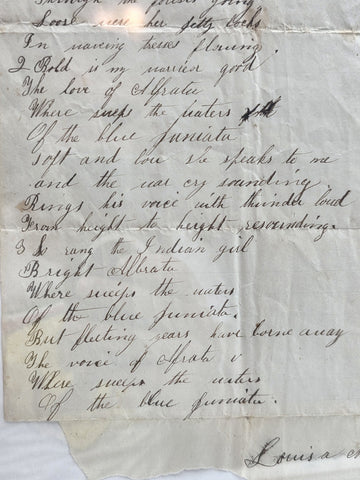 Through the forest going
Loose were her jetty locks
In waveing tresses flowing.
2 Bold is my warrior good
The love of Alfrata
Where sweeps the waters
Of the blue juniata
soft and low she speaks to me
and the war cry sounding
Rings his voice with thunder loud
From height to height resounding.
3 So rang the Indian girl
Bright Alfrata
Where sweeps the waters
Of the blue juniata.
But fleeting years have borne away
The voice of Alfrata
Where sweeps the waters
Of the blue juniata.
Louisa